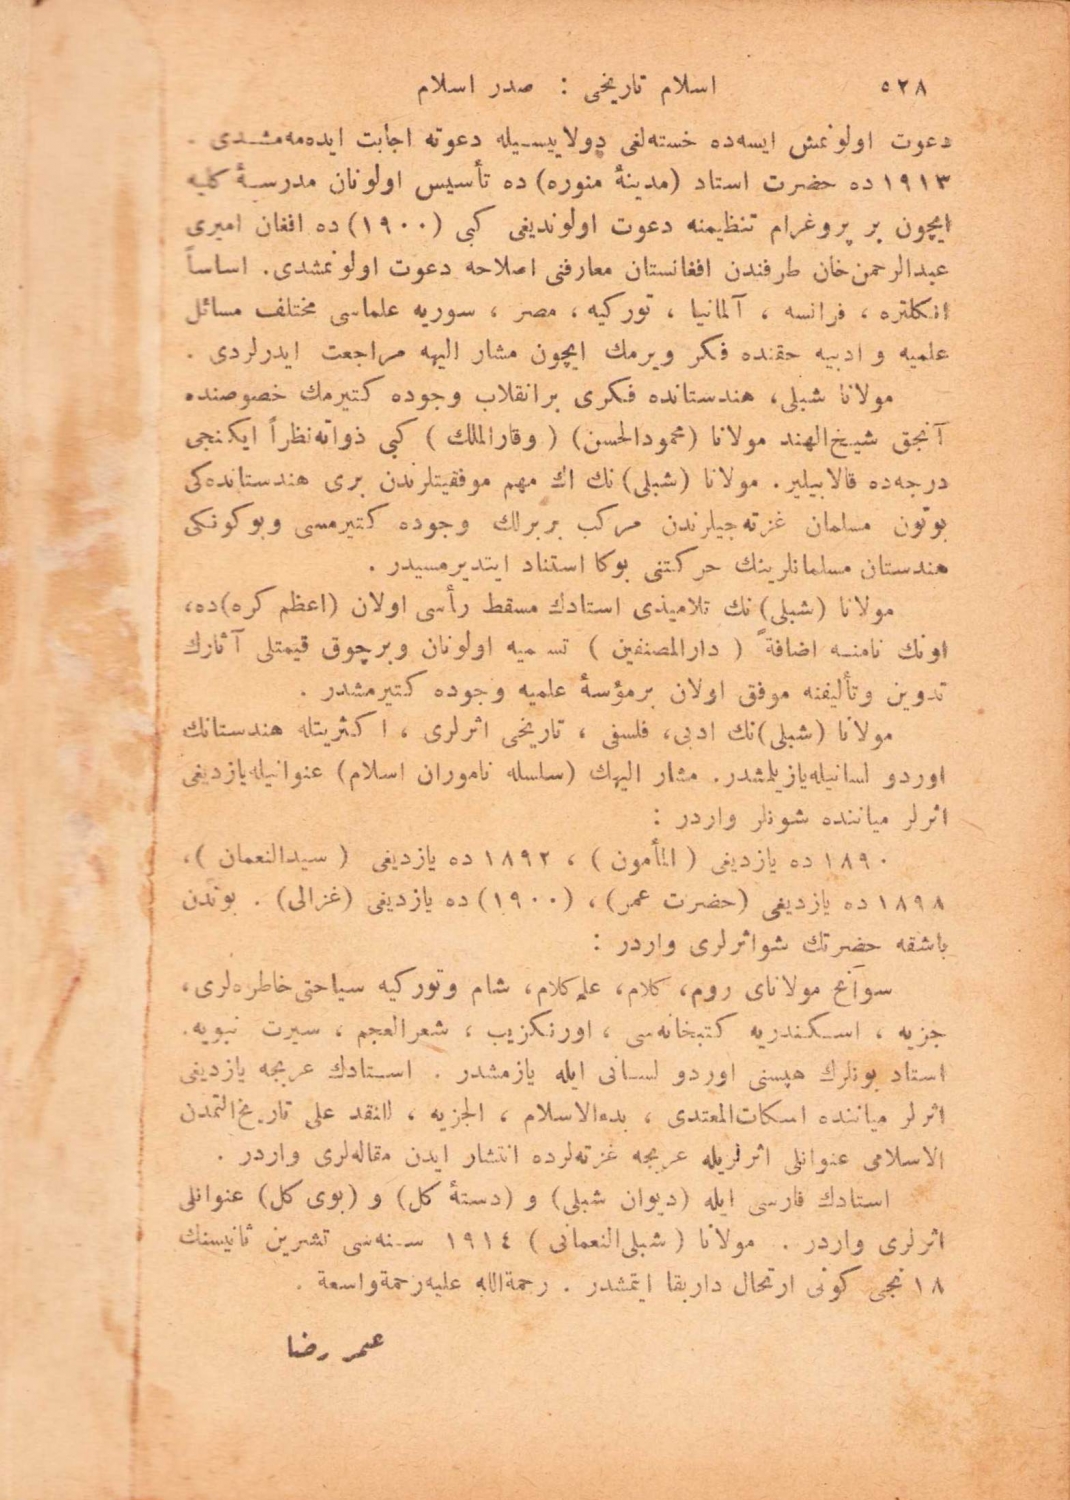 ٥٢٨ اسلام تاریخی : صدر اسلام
دعوت اولونمش ایسه‌ده خسته‌لغی دولاییسیله دعوته اجابت ایده‌مه‌مشدی .
١٩١٣ ده حضرت استاد (مدینۀ منوره) ده تأسیس اولونان مدرسۀ کلیه
ایچون بر پروغرام تنظیمنه دعوت اولوندیغی کبی (١٩٠٠) ده افغان امیری
عبدالرحمن‌خان طرفندن افغانستان معارفنی اصلاحه دعوت اولونمشدی. اساساً
انكلتره ، فرانسه ، آلمانیا ، تورکیه ، مصر ، سوریه علماسی مختلف مسائل
علمیه و ادبیه حقنده فکر ویرمك ایچون مشار الیهه مراجعت ایدرلردی .
مولانا شبلی، هندستانده فکری برانقلاب وجوده کتیرمك خصوصنده
آنجق شیخ‌الهند مولانا (محمودالحسن) ( وقارالملك ) کبی ذواته‌نظراً ایکنجی
درجه‌ده قالابیلیر. مولانا (شبلی)نك اك مهم موفقیتلرندن بری هندستانده‌کی
بوتون مسلمان غزته‌جیلرندن مرکب بربرلك وجوده کتیرمسی وبوکونکی
هندستان مسلمانلرینك حرکتنی بوکا استناد ایتدیرمسیدر .
مولانا (شبلی)نك تلامیذی استادك مسقط رأسی اولان (اعظم کره)ده،
اونك نامنه اضافةً ( دارالمصنفین ) تسمیه اولونان وبرچوق قیمتلی آثارك
تدوین وتألیفنه موفق اولان برمؤسسۀ علمیه وجوده کتیرمشدر .
مولانا (شبلی)نك ادبی، فلسفی ، تاریخی اثرلری ، اکثریتله هندستانك
اوردو لسانیله‌یازیلمشدر. مشار الیهك (سلسله ناموران اسلام) عنوانیله‌یازدیغی
اثرلر میاننده شونلر واردر :
١٨٩٠ ده یازدیغی ( المأمون ) ، ١٨٩٢ ده یازدیغی ( سیدالنعمان )،
١٨٩٨ ده یازدیغی (حضرت عمر)، (١٩٠٠) ده یازدیغی (غزالی) . بوندن
باشقه حضرتك شواثرلری واردر :
سوانح مولانای روم، کلام، علم‌کلام، شام وتورکیه سیاحتی‌خاطره‌لری،
جزیه ، اسکندریه کتبخانه‌سی ، اورنکزیب ، شعرالعجم ، سیرت نبویه.
استاد بونلرك هپسنی اوردو لسانی ایله یازمشدر . استادك عربجه یازدیغی
اثرلر میاننده اسکات‌المعتدی ، بدءالاسلام ، الجزیه ، النقد علی تاریخ‌التمدن
الاسلامی عنوانلی اثرلریله عربجه غزته‌لرده انتشار ایدن مقاله‌لری واردر .
استادك فارسی ایله (دیوان شبلی) و (دستۀ کل) و (بوی کل) عنوانلی
اثرلری واردر . مولانا ( شبلی‌النعمانی ) ١٩١٤ سنه‌سی تشرین ثانیسنك
١٨ نجی کونی ارتحال داربقا ایتمشدر . رحمة‌الله علیه‌رحمة‌واسعة .
عمر رضا